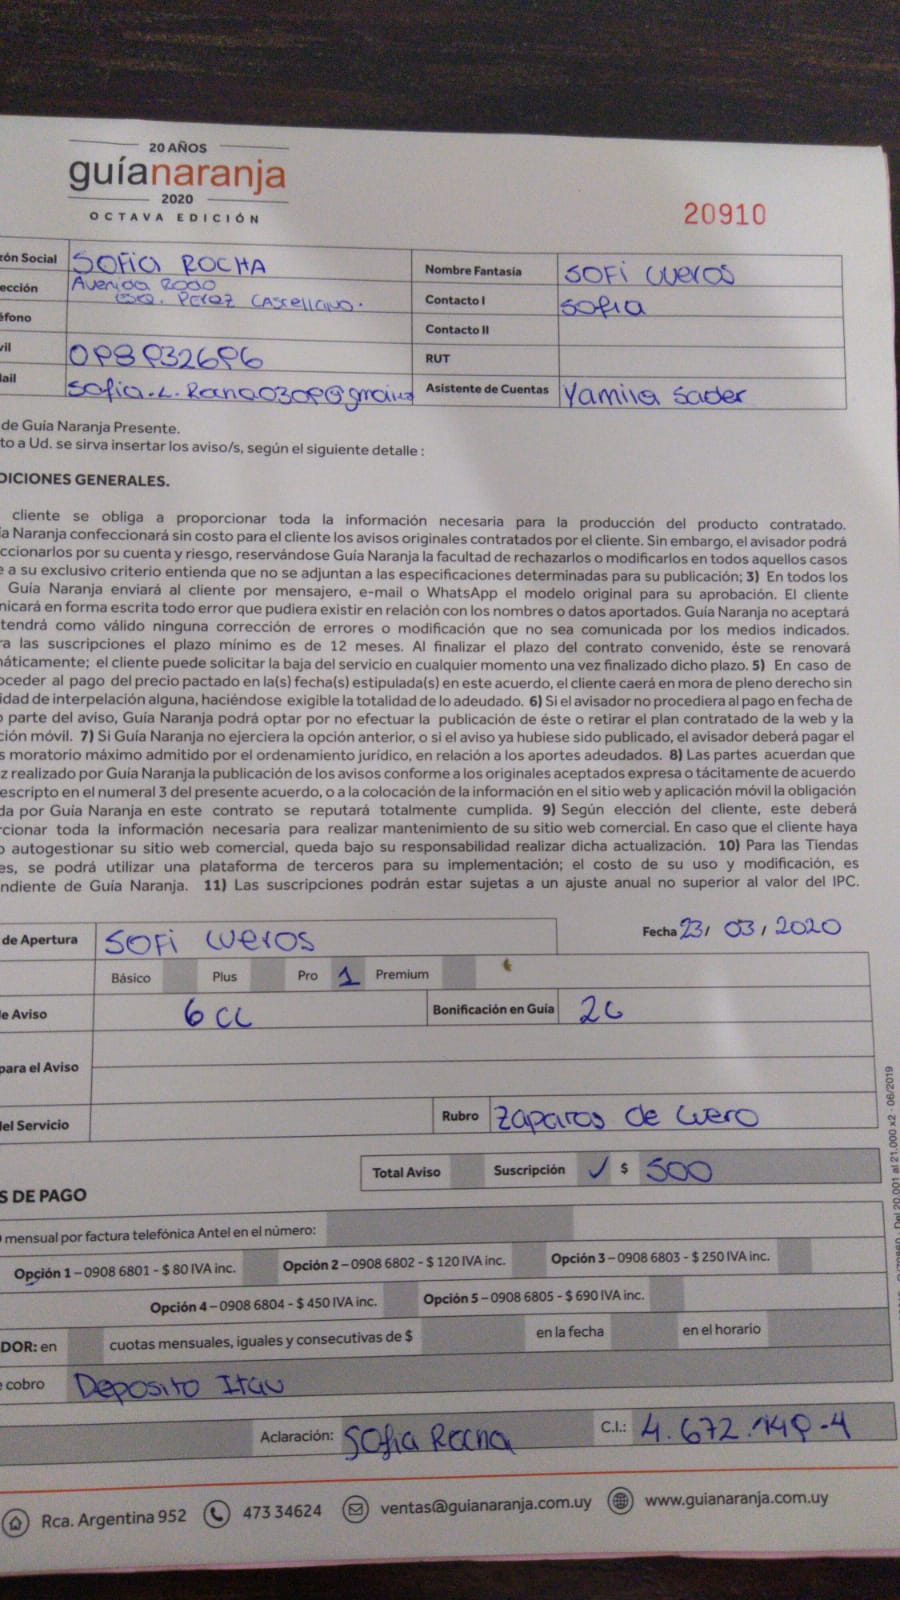 20 AÑOS
guíanaranja
2020
OCTAVA EDICIÓN
20910
zón Social SOFIA ROCHA Nombre Fantasía SOFI CUEROS
ección Avenida RODO
ESQ. PEREZ CASTELLANO. Contacto I SOFIA
éfono Contacto II
vil 098932696 RUT
ail Asistente de Cuentas Yamila Sader
de Guía Naranja Presente.
to a Ud. se sirva insertar los aviso/s, según el siguiente detalle :
DICIONES GENERALES.
cliente se obliga a proporcionar toda la información necesaria para la producción del producto contratado.
ía Naranja confeccionará sin costo para el cliente los avisos originales contratados por el cliente. Sin embargo, el avisador podrá
ccionarlos por su cuenta y riesgo, reservándose Guía Naranja la facultad de rechazarlos o modificarlos en todos aquellos casos
e a su exclusivo criterio entienda que no se adjuntan a las especificaciones determinadas para su publicación; 3) En todos los
Guía Naranja enviará al cliente por mensajero, e-mail o WhatsApp el modelo original para su aprobación. El cliente
nicará en forma escrita todo error que pudiera existir en relación con los nombres o datos aportados. Guía Naranja no aceptará
tendrá como válido ninguna corrección de errores o modificación que no sea comunicada por los medios indicados.
ra las suscripciones el plazo mínimo es de 12 meses. Al finalizar el plazo del contrato convenido, éste se renovará
máticamente; el cliente puede solicitar la baja del servicio en cualquier momento una vez finalizado dicho plazo. 5) En caso de
oceder al pago del precio pactado en la(s) fecha(s) estipulada(s) en este acuerdo, el cliente caerá en mora de pleno derecho sin
idad de interpelación alguna, haciéndose exigible la totalidad de lo adeudado. 6) Si el avisador no procediera al pago en fecha de
o parte del aviso, Guía Naranja podrá optar por no efectuar la publicación de éste o retirar el plan contratado de la web y la
ción móvil. 7) Si Guía Naranja no ejerciera la opción anterior, o si el aviso ya hubiese sido publicado, el avisador deberá pagar el
s moratorio máximo admitido por el ordenamiento jurídico, en relación a los aportes adeudados. 8) Las partes acuerdan que
z realizado por Guía Naranja la publicación de los avisos conforme a los originales aceptados expresa o tácitamente de acuerdo
escripto en el numeral 3 del presente acuerdo, o a la colocación de la información en el sitio web y aplicación móvil la obligación
da por Guía Naranja en este contrato se reputará totalmente cumplida. 9) Según elección del cliente, este deberá
rcionar toda la información necesaria para realizar mantenimiento de su sitio web comercial. En caso que el cliente haya
o autogestionar su sitio web comercial, queda bajo su responsabilidad realizar dicha actualización. 10) Para las Tiendas
es, se podrá utilizar una plataforma de terceros para su implementación; el costo de su uso y modificación, es
ndiente de Guía Naranja. 11) Las suscripciones podrán estar sujetas a un ajuste anual no superior al valor del IPC.
de Apertura SOFI CUEROS Fecha 23/ 03 / 2020
Básico Plus Pro 1 Premium
e Aviso 6 CC Bonificación en Guía 2C
para el Aviso
del Servicio Rubro Zapatos de cuero
Total Aviso Suscripción ✓ $ 500
S DE PAGO
mensual por factura telefónica Antel en el número:
Opción 1 – 0908 6801 - $ 80 IVA inc. Opción 2 – 0908 6802 - $ 120 IVA inc. Opción 3 – 0908 6803 - $ 250 IVA inc.
Opción 4 – 0908 6804 - $ 450 IVA inc. Opción 5 – 0908 6805 - $ 690 IVA inc.
DOR: en cuotas mensuales, iguales y consecutivas de $ en la fecha en el horario
e cobro Deposito Itau
Aclaración: Sofia Rocha C.I.: 4.672.149-4
Rca. Argentina 952 473 34624 ventas@guianaranja.com.uy www.guianaranja.com.uy
Del 20.001 al 21.000 x2 - 06/2019